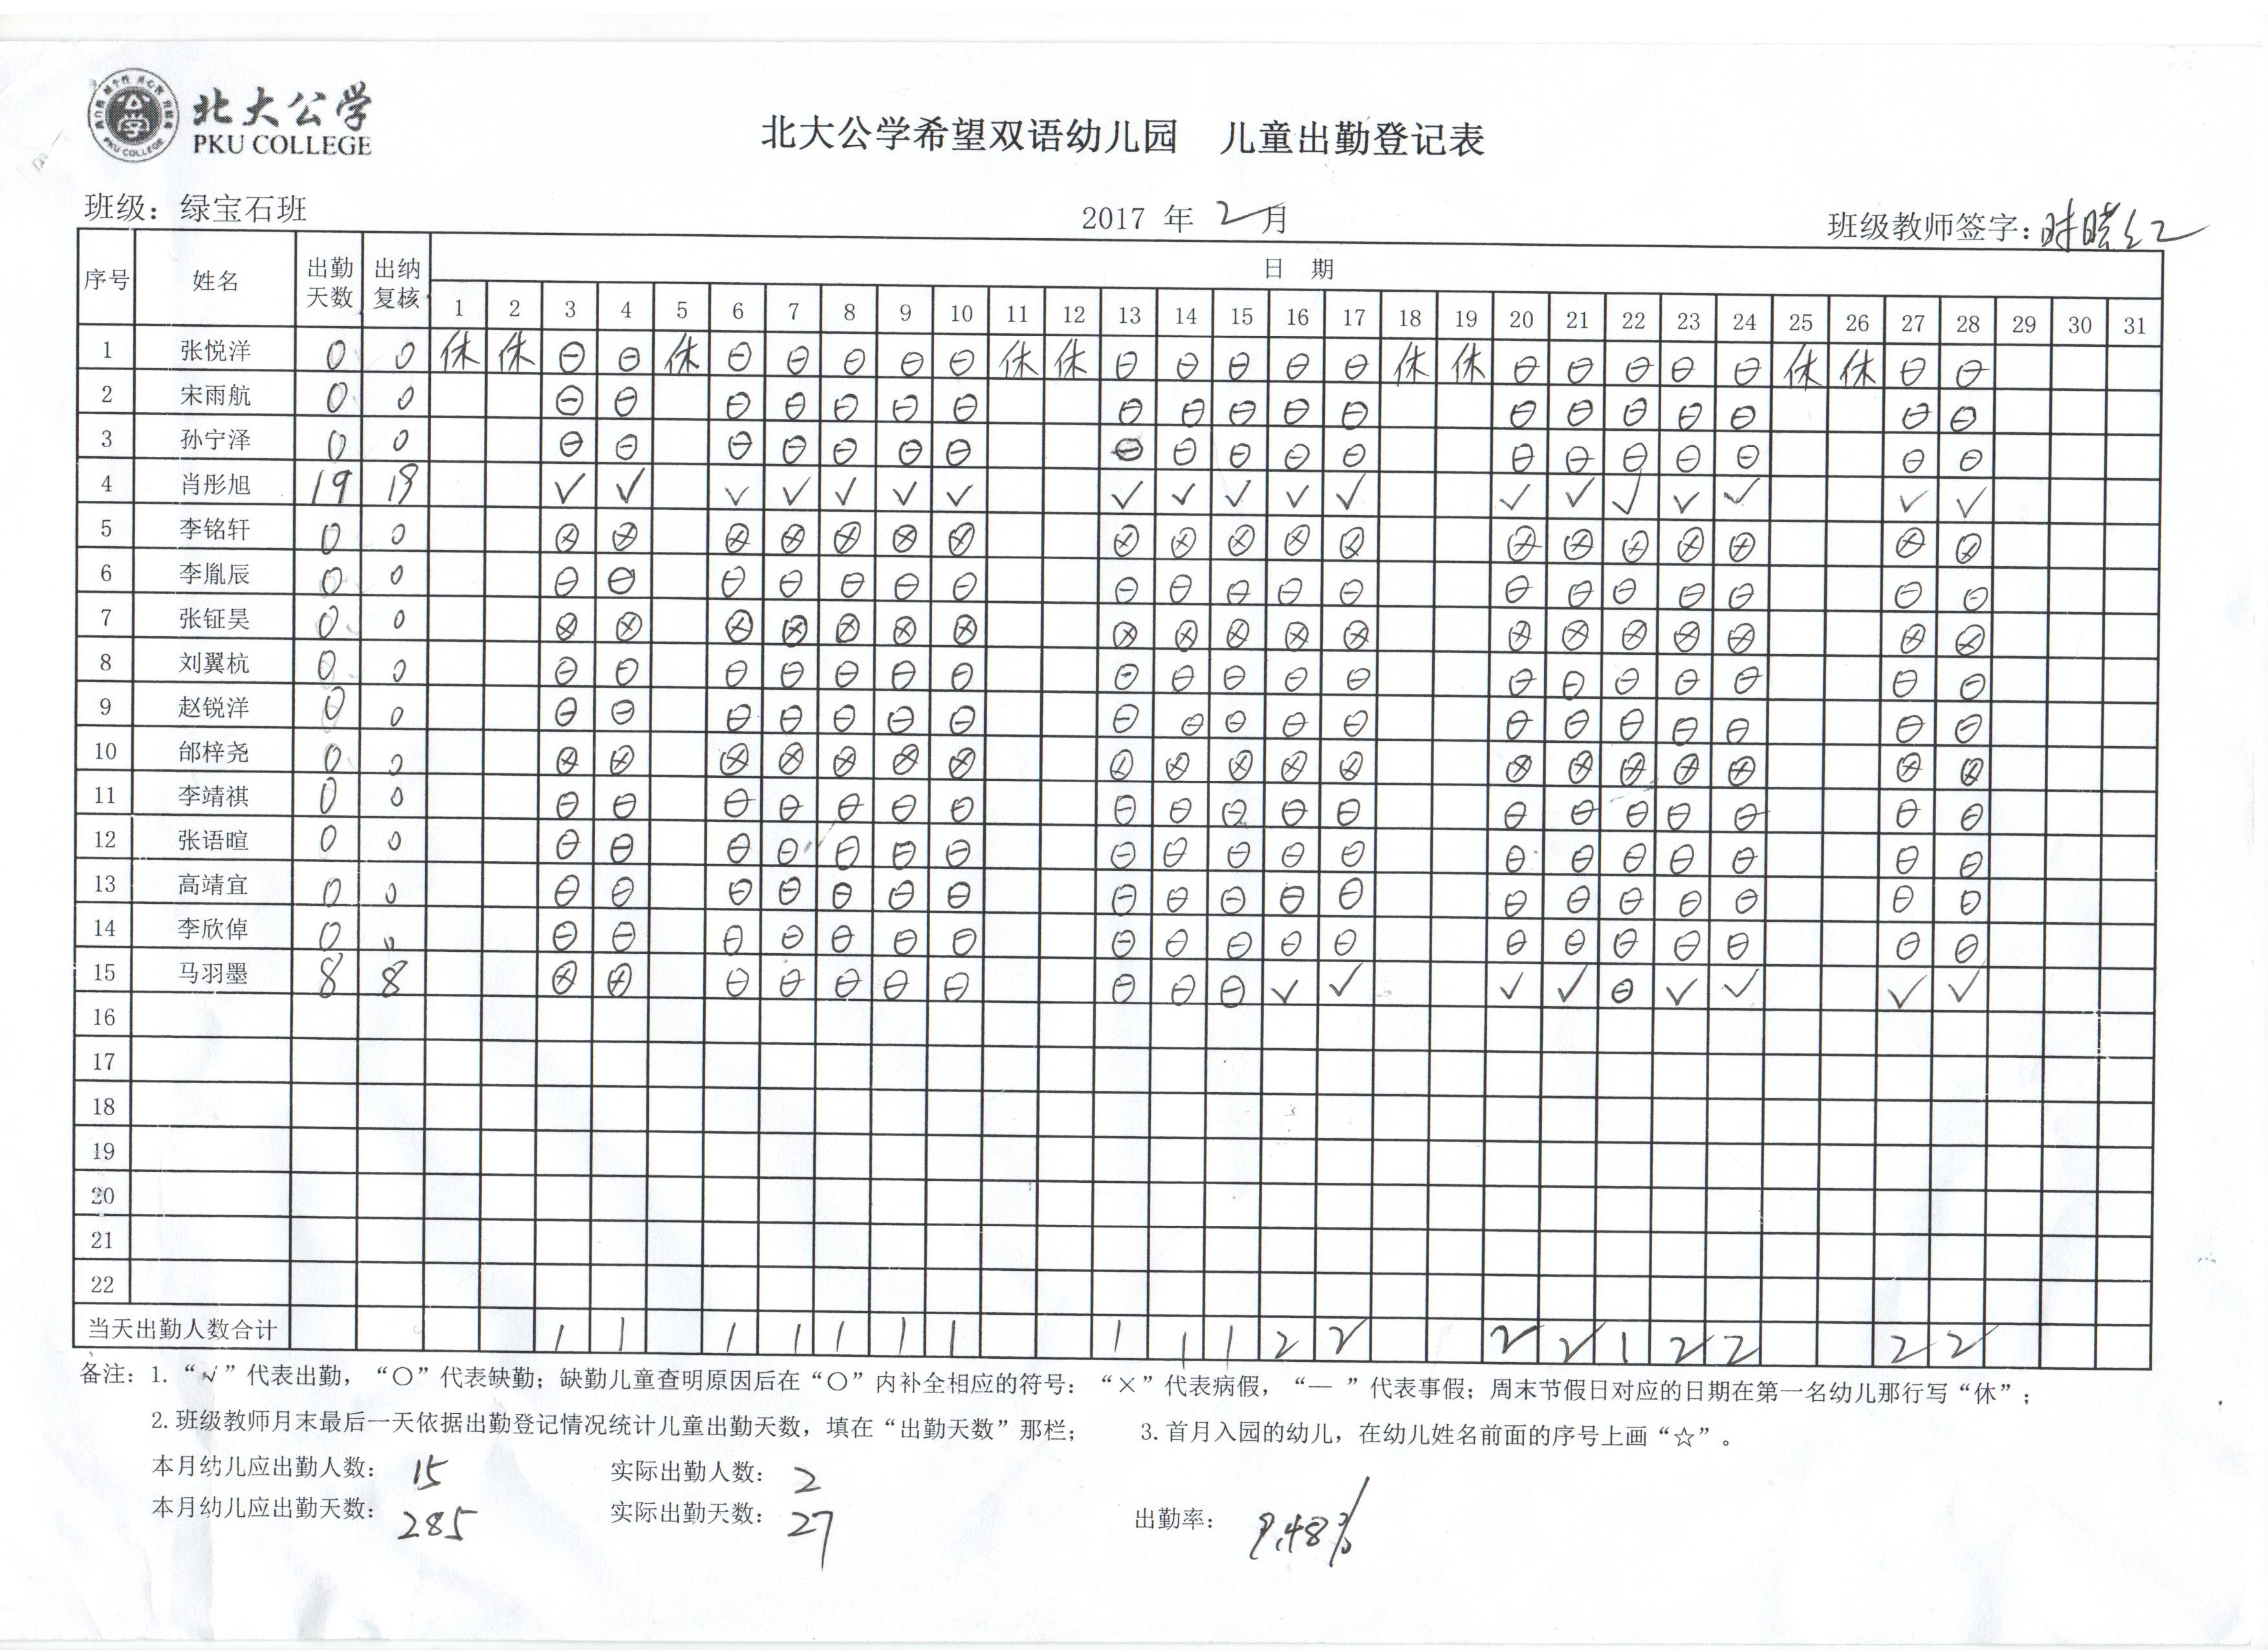 北大公学
PKU COLLEGE
北大公学希望双语幼儿园 儿童出勤登记表
班级：绿宝石班 2017 年 2月 班级教师签字：时晓红
序号 姓名 出勤天数 出纳复核 日 期
1 2 3 4 5 6 7 8 9 10 11 12 13 14 15 16 17 18 19 20 21 22 23 24 25 26 27 28 29 30 31
1 张悦洋 0 0 休 休 ⊖ ⊖ 休 ⊖ ⊖ ⊖ ⊖ ⊖ 休 休 ⊖ ⊖ ⊖ ⊖ ⊖ 休 休 ⊖ ⊖ ⊖ ⊖ ⊖ 休 休 ⊖ ⊖
2 宋雨航 0 0 ⊖ ⊖ ⊖ ⊖ ⊖ ⊖ ⊖ ⊖ ⊖ ⊖ ⊖ ⊖ ⊖ ⊖ ⊖ ⊖ ⊖ ⊖ ⊖
3 孙宁泽 0 0 ⊖ ⊖ ⊖ ⊖ ⊖ ⊖ ⊖ ⊖ ⊖ ⊖ ⊖ ⊖ ⊖ ⊖ ⊖ ⊖ ⊖ ⊖ ⊖
4 肖彤旭 19 19 √ √ √ √ √ √ √ √ √ √ √ √ √ √ √ √ √ √ √
5 李铭轩 0 0 ⊗ ⊗ ⊗ ⊗ ⊗ ⊗ ⊗ ⊗ ⊗ ⊗ ⊗ ⊗ ⊗ ⊗ ⊗ ⊗ ⊗ ⊗ ⊗
6 李胤辰 0 0 ⊖ ⊖ ⊖ ⊖ ⊖ ⊖ ⊖ ⊖ ⊖ ⊖ ⊖ ⊖ ⊖ ⊖ ⊖ ⊖ ⊖ ⊖ ⊖
7 张钲昊 0 0 ⊗ ⊗ ⊗ ⊗ ⊗ ⊗ ⊗ ⊗ ⊗ ⊗ ⊗ ⊗ ⊗ ⊗ ⊗ ⊗ ⊗ ⊗ ⊗
8 刘翼杭 0 0 ⊖ ⊖ ⊖ ⊖ ⊖ ⊖ ⊖ ⊖ ⊖ ⊖ ⊖ ⊖ ⊖ ⊖ ⊖ ⊖ ⊖ ⊖ ⊖
9 赵锐洋 0 0 ⊖ ⊖ ⊖ ⊖ ⊖ ⊖ ⊖ ⊖ ⊖ ⊖ ⊖ ⊖ ⊖ ⊖ ⊖ ⊖ ⊖ ⊖ ⊖
10 邰梓尧 0 0 ⊗ ⊗ ⊗ ⊗ ⊗ ⊗ ⊗ ⊗ ⊗ ⊗ ⊗ ⊗ ⊗ ⊗ ⊗ ⊗ ⊗ ⊗ ⊗
11 李靖祺 0 0 ⊖ ⊖ ⊖ ⊖ ⊖ ⊖ ⊖ ⊖ ⊖ ⊖ ⊖ ⊖ ⊖ ⊖ ⊖ ⊖ ⊖ ⊖ ⊖
12 张语暄 0 0 ⊖ ⊖ ⊖ ⊖ ⊖ ⊖ ⊖ ⊖ ⊖ ⊖ ⊖ ⊖ ⊖ ⊖ ⊖ ⊖ ⊖ ⊖ ⊖
13 高靖宜 0 0 ⊖ ⊖ ⊖ ⊖ ⊖ ⊖ ⊖ ⊖ ⊖ ⊖ ⊖ ⊖ ⊖ ⊖ ⊖ ⊖ ⊖ ⊖ ⊖
14 李欣倬 0 0 ⊖ ⊖ ⊖ ⊖ ⊖ ⊖ ⊖ ⊖ ⊖ ⊖ ⊖ ⊖ ⊖ ⊖ ⊖ ⊖ ⊖ ⊖ ⊖
15 马羽墨 8 8 ⊗ ⊗ ⊖ ⊖ ⊖ ⊖ ⊖ ⊖ ⊖ ⊖ √ √ √ √ ⊖ √ √ √ √
16
17
18
19
20
21
22
当天出勤人数合计 1 1 1 1 1 1 1 1 1 1 2 2 2 2 1 2 2 2 2
备注：1.“√”代表出勤，“○”代表缺勤；缺勤儿童查明原因后在“○”内补全相应的符号：“×”代表病假，“— ”代表事假；周末节假日对应的日期在第一名幼儿那行写“休”；
2.班级教师月末最后一天依据出勤登记情况统计儿童出勤天数，填在“出勤天数”那栏； 3.首月入园的幼儿，在幼儿姓名前面的序号上画“☆”。
本月幼儿应出勤人数： 15 实际出勤人数： 2
本月幼儿应出勤天数： 285 实际出勤天数： 27 出勤率： 9.48%